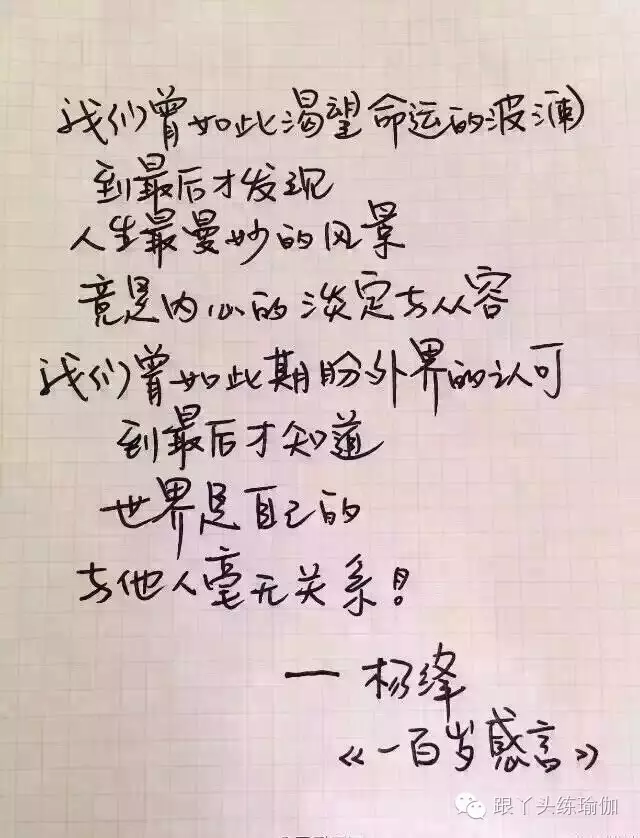 我们曾如此渴望命运的波澜
到最后才发现
人生最曼妙的风景
竟是内心的淡定与从容
我们曾如此期盼外界的认可
到最后才知道
世界是自己的
与他人毫无关系!
— 杨绛
《一百岁感言》
跟丫头练瑜伽